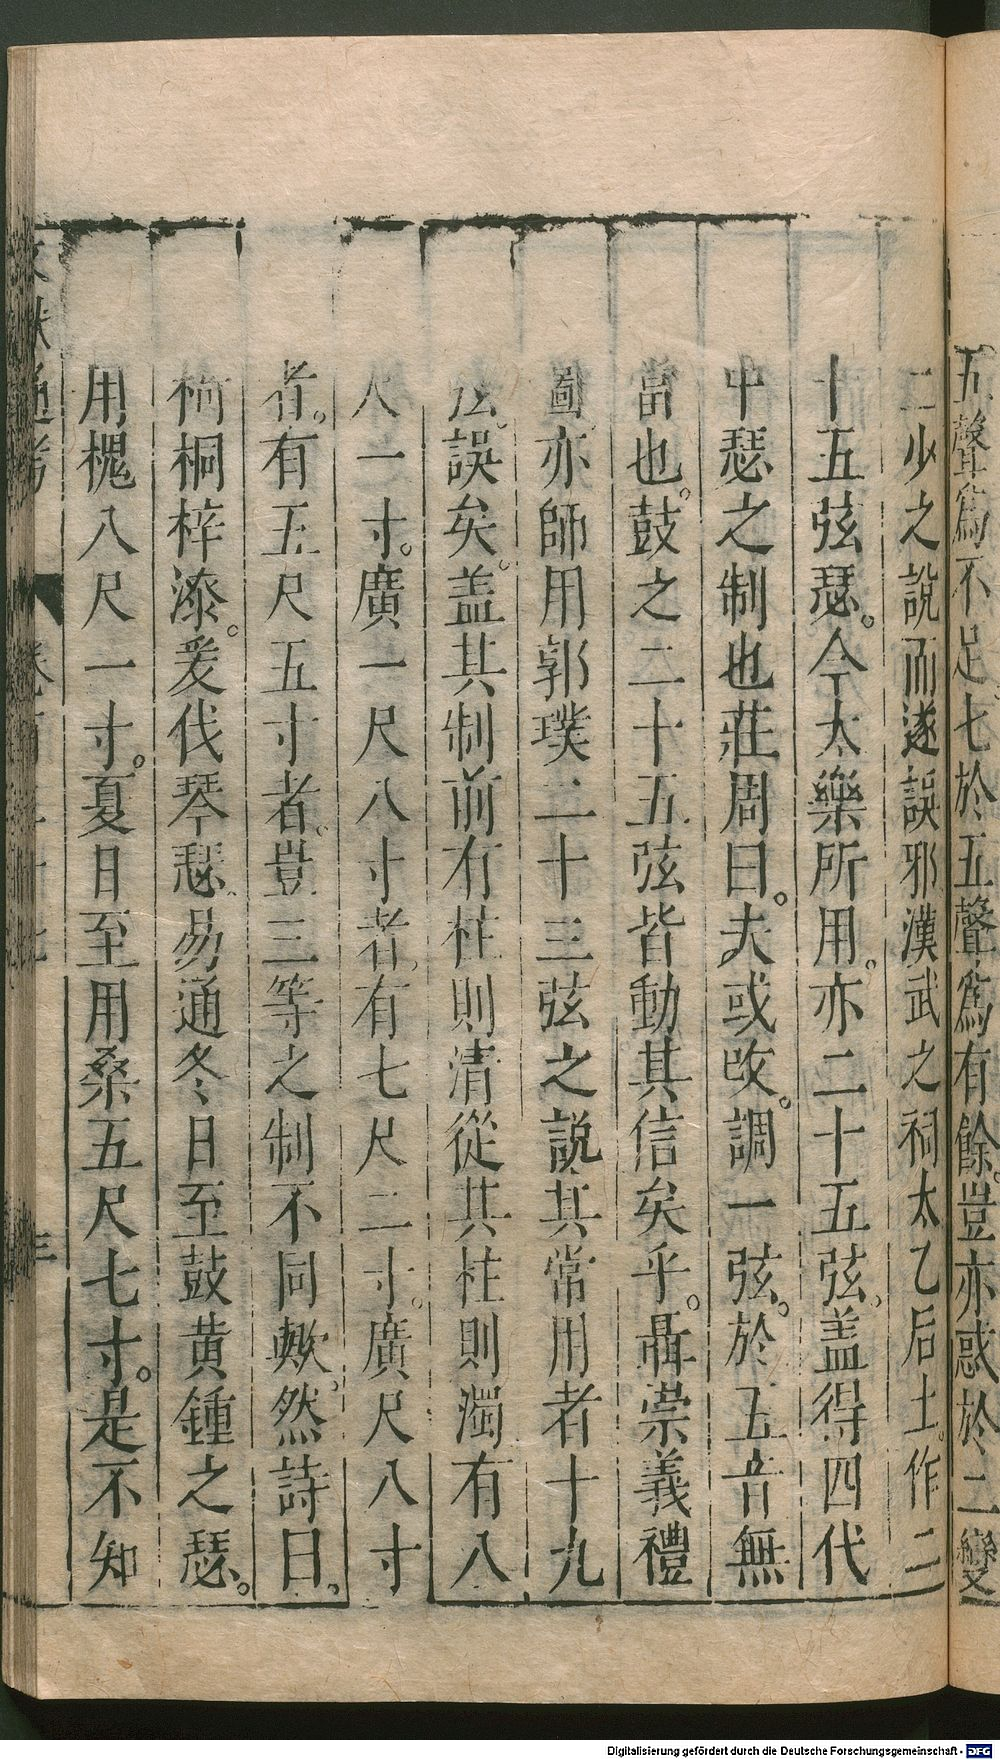 五聲爲不足七於五聲爲有餘。豈亦惑於二變
二少之說而遂誤邪漢武之祠太乙后土。作二
十五弦瑟。今太樂所用。亦二十五弦。盖得四代
中瑟之制也莊周曰。夫或改。調一弦。於五音無
當也。鼓之二十五弦皆動其信矣乎。聶崇義禮
圖亦師用郭璞二十三弦之說其常用者十九
弦。誤矣。盖其制前有柱則清從其柱則濁有八
尺一寸。廣一尺八寸者。有七尺二寸。廣尺八寸
者。有五尺五寸者。豈三等之制不同歟。然詩曰、
椅桐梓漆。爰伐琴瑟。易通冬日至鼓黃鍾之瑟。
用槐八尺一寸。夏日至用桑五尺七寸。是不知
文獻通考
三
Digitalisierung gefördert durch die Deutsche Forschungsgemeinschaft - DFG